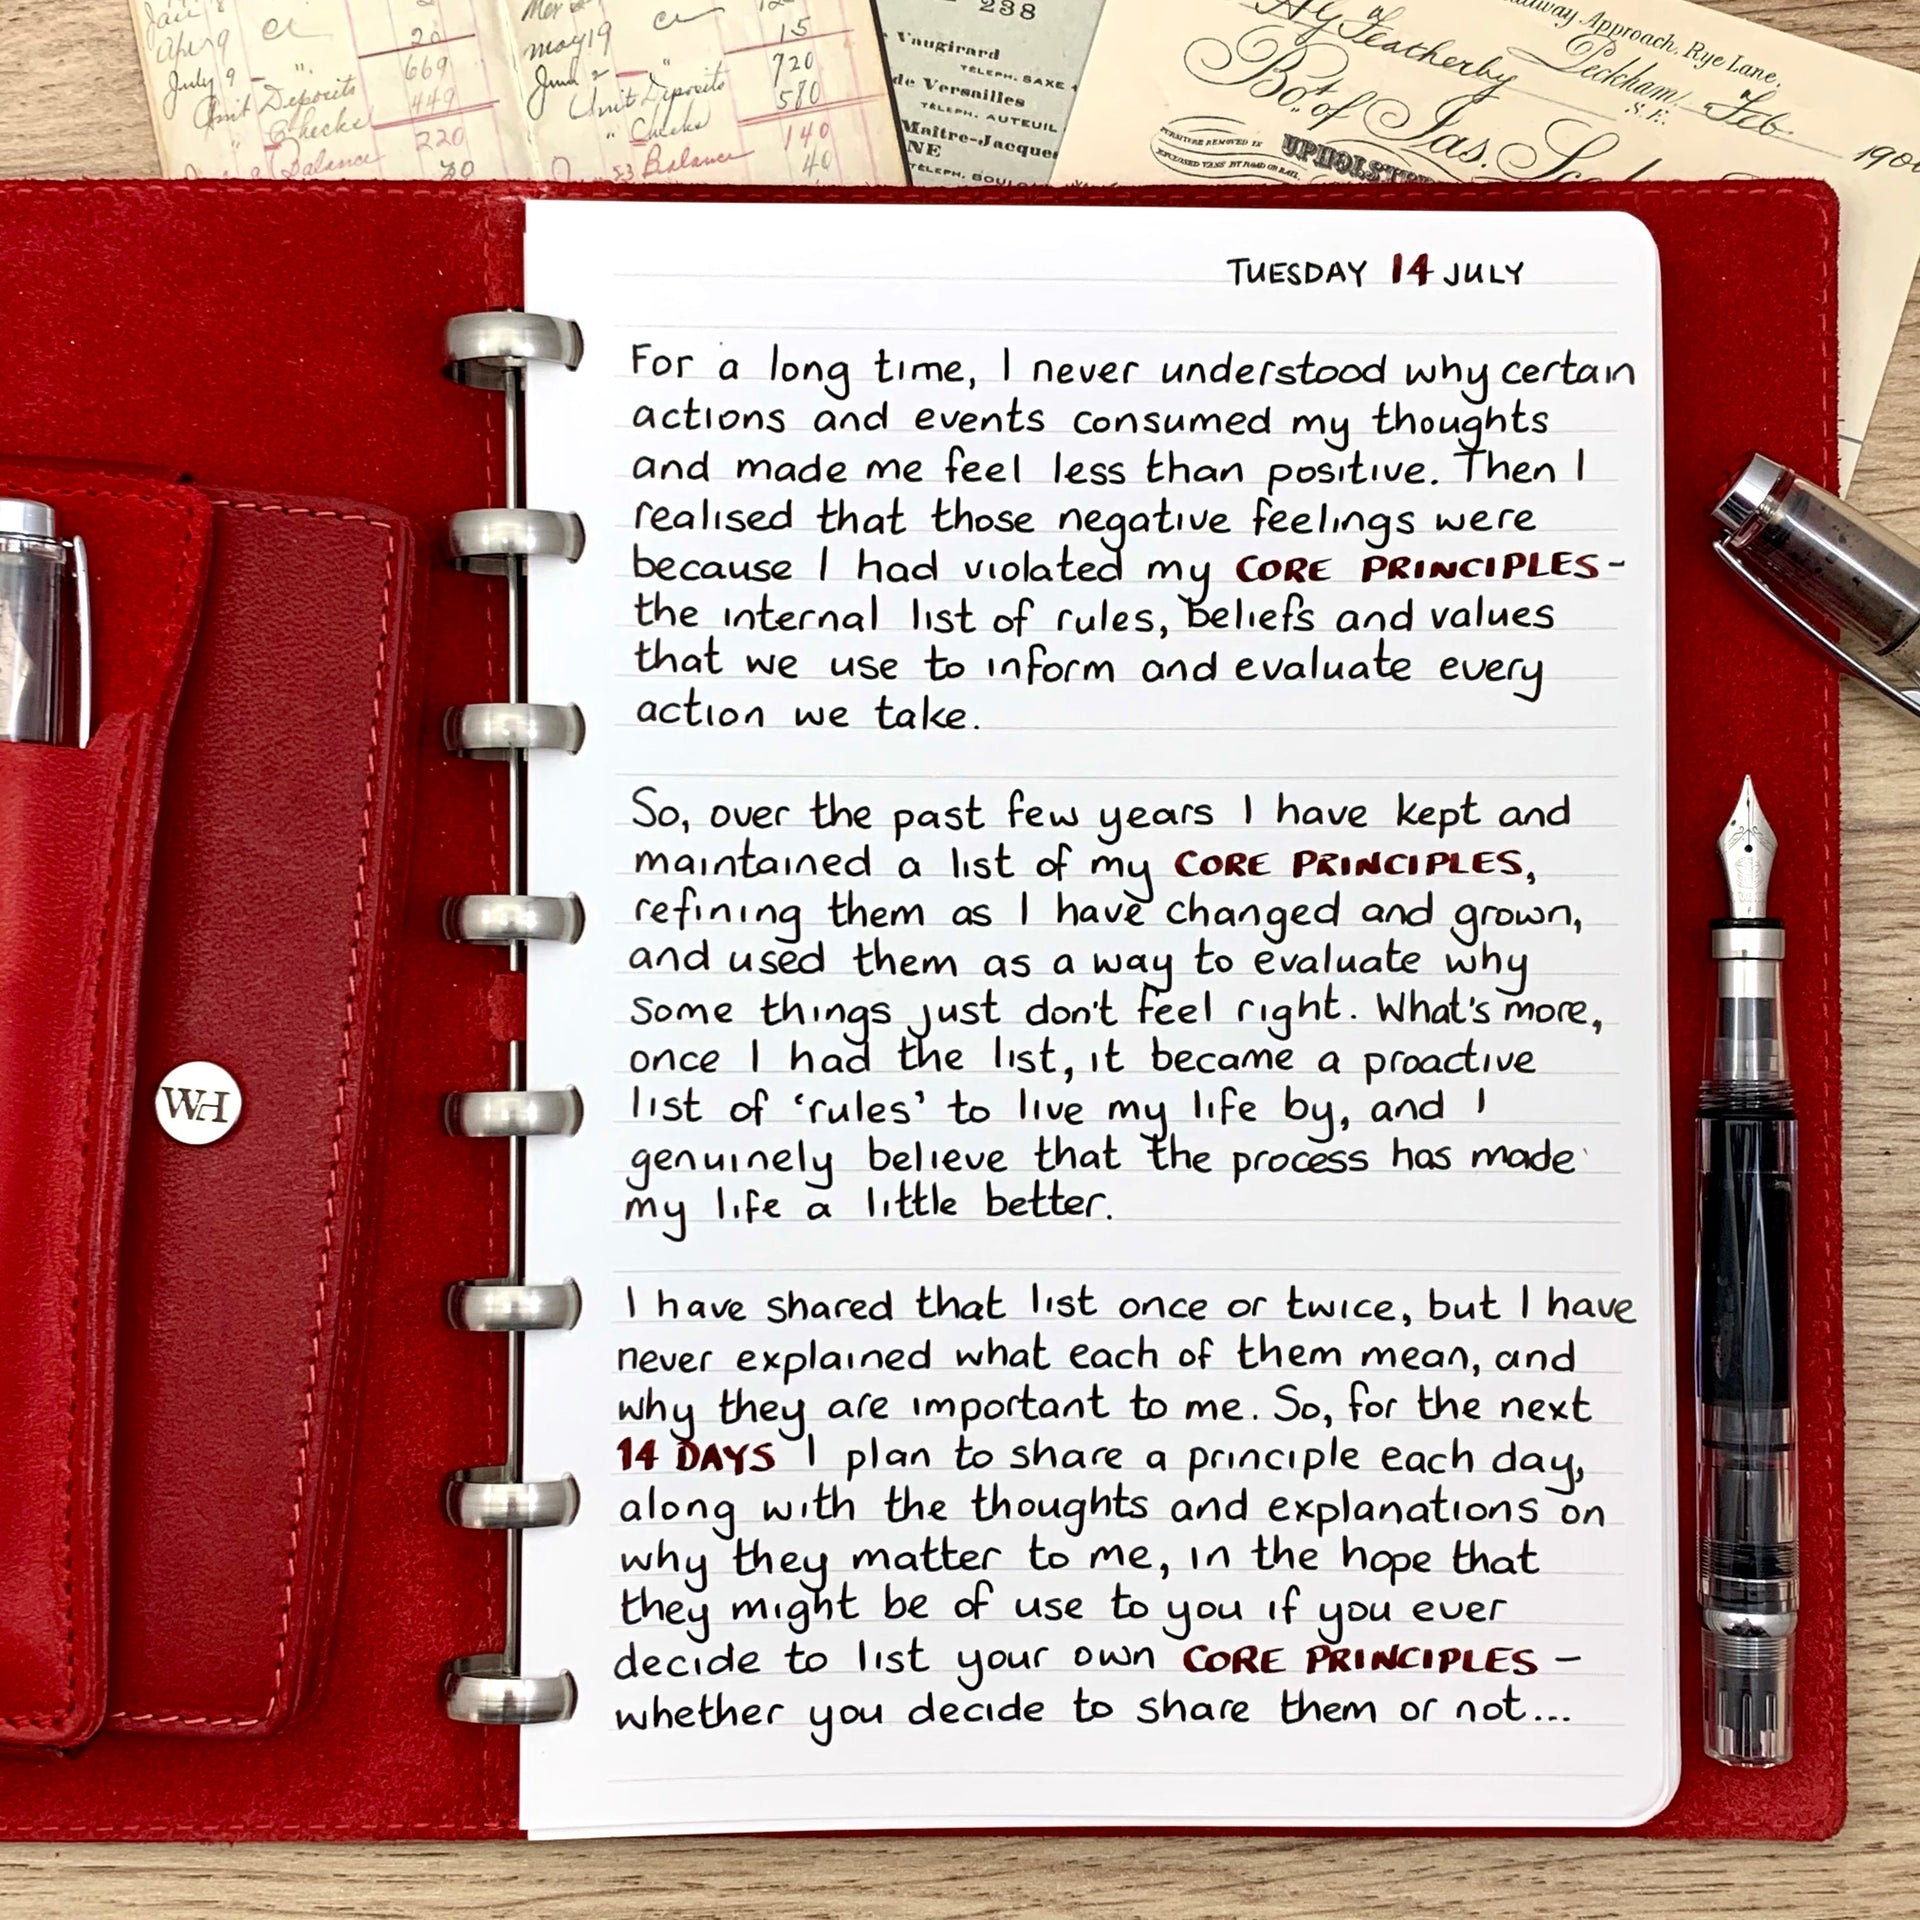 Jan 8
Apr 9 Cr 20
July 9 " 669
Unit Deposits 449
" Checks 220
Balance 30
May 19 Cr 15
June 2 " 720
Unit Deposits 580
" Checks 140
53 Balance 40
238
Vaugirard
TÉLEPH. SAXE
de Versailles
TÉLEPH. AUTEUIL
Maître-Jacques
NE
TÉLEPH.
Approach, Rye Lane,
Peckham, S.E.
Featherby
Feb. 190
Bot. of Jas.
FURNITURE REMOVED IN
UPHOLST
WH
TUESDAY 14 JULY
For a long time, I never understood why certain
actions and events consumed my thoughts
and made me feel less than positive. Then I
realised that those negative feelings were
because I had violated my CORE PRINCIPLES-
the internal list of rules, beliefs and values
that we use to inform and evaluate every
action we take.
So, over the past few years I have kept and
maintained a list of my CORE PRINCIPLES,
refining them as I have changed and grown,
and used them as a way to evaluate why
some things just don't feel right. What's more,
once I had the list, it became a proactive
list of 'rules' to live my life by, and I
genuinely believe that the process has made
my life a little better.
I have shared that list once or twice, but I have
never explained what each of them mean, and
why they are important to me. So, for the next
14 DAYS I plan to share a principle each day,
along with the thoughts and explanations on
why they matter to me, in the hope that
they might be of use to you if you ever
decide to list your own CORE PRINCIPLES –
whether you decide to share them or not...